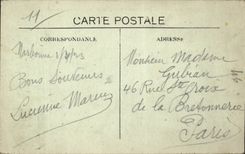 11
CARTE POSTALE
CORRESPONDANCE
ADRESSE
Narbonne
Bons Souvenirs
Lucienne
Monsieur Madame
Gubian
46 Rue Ste Croix
de la Bretonnerie
Paris